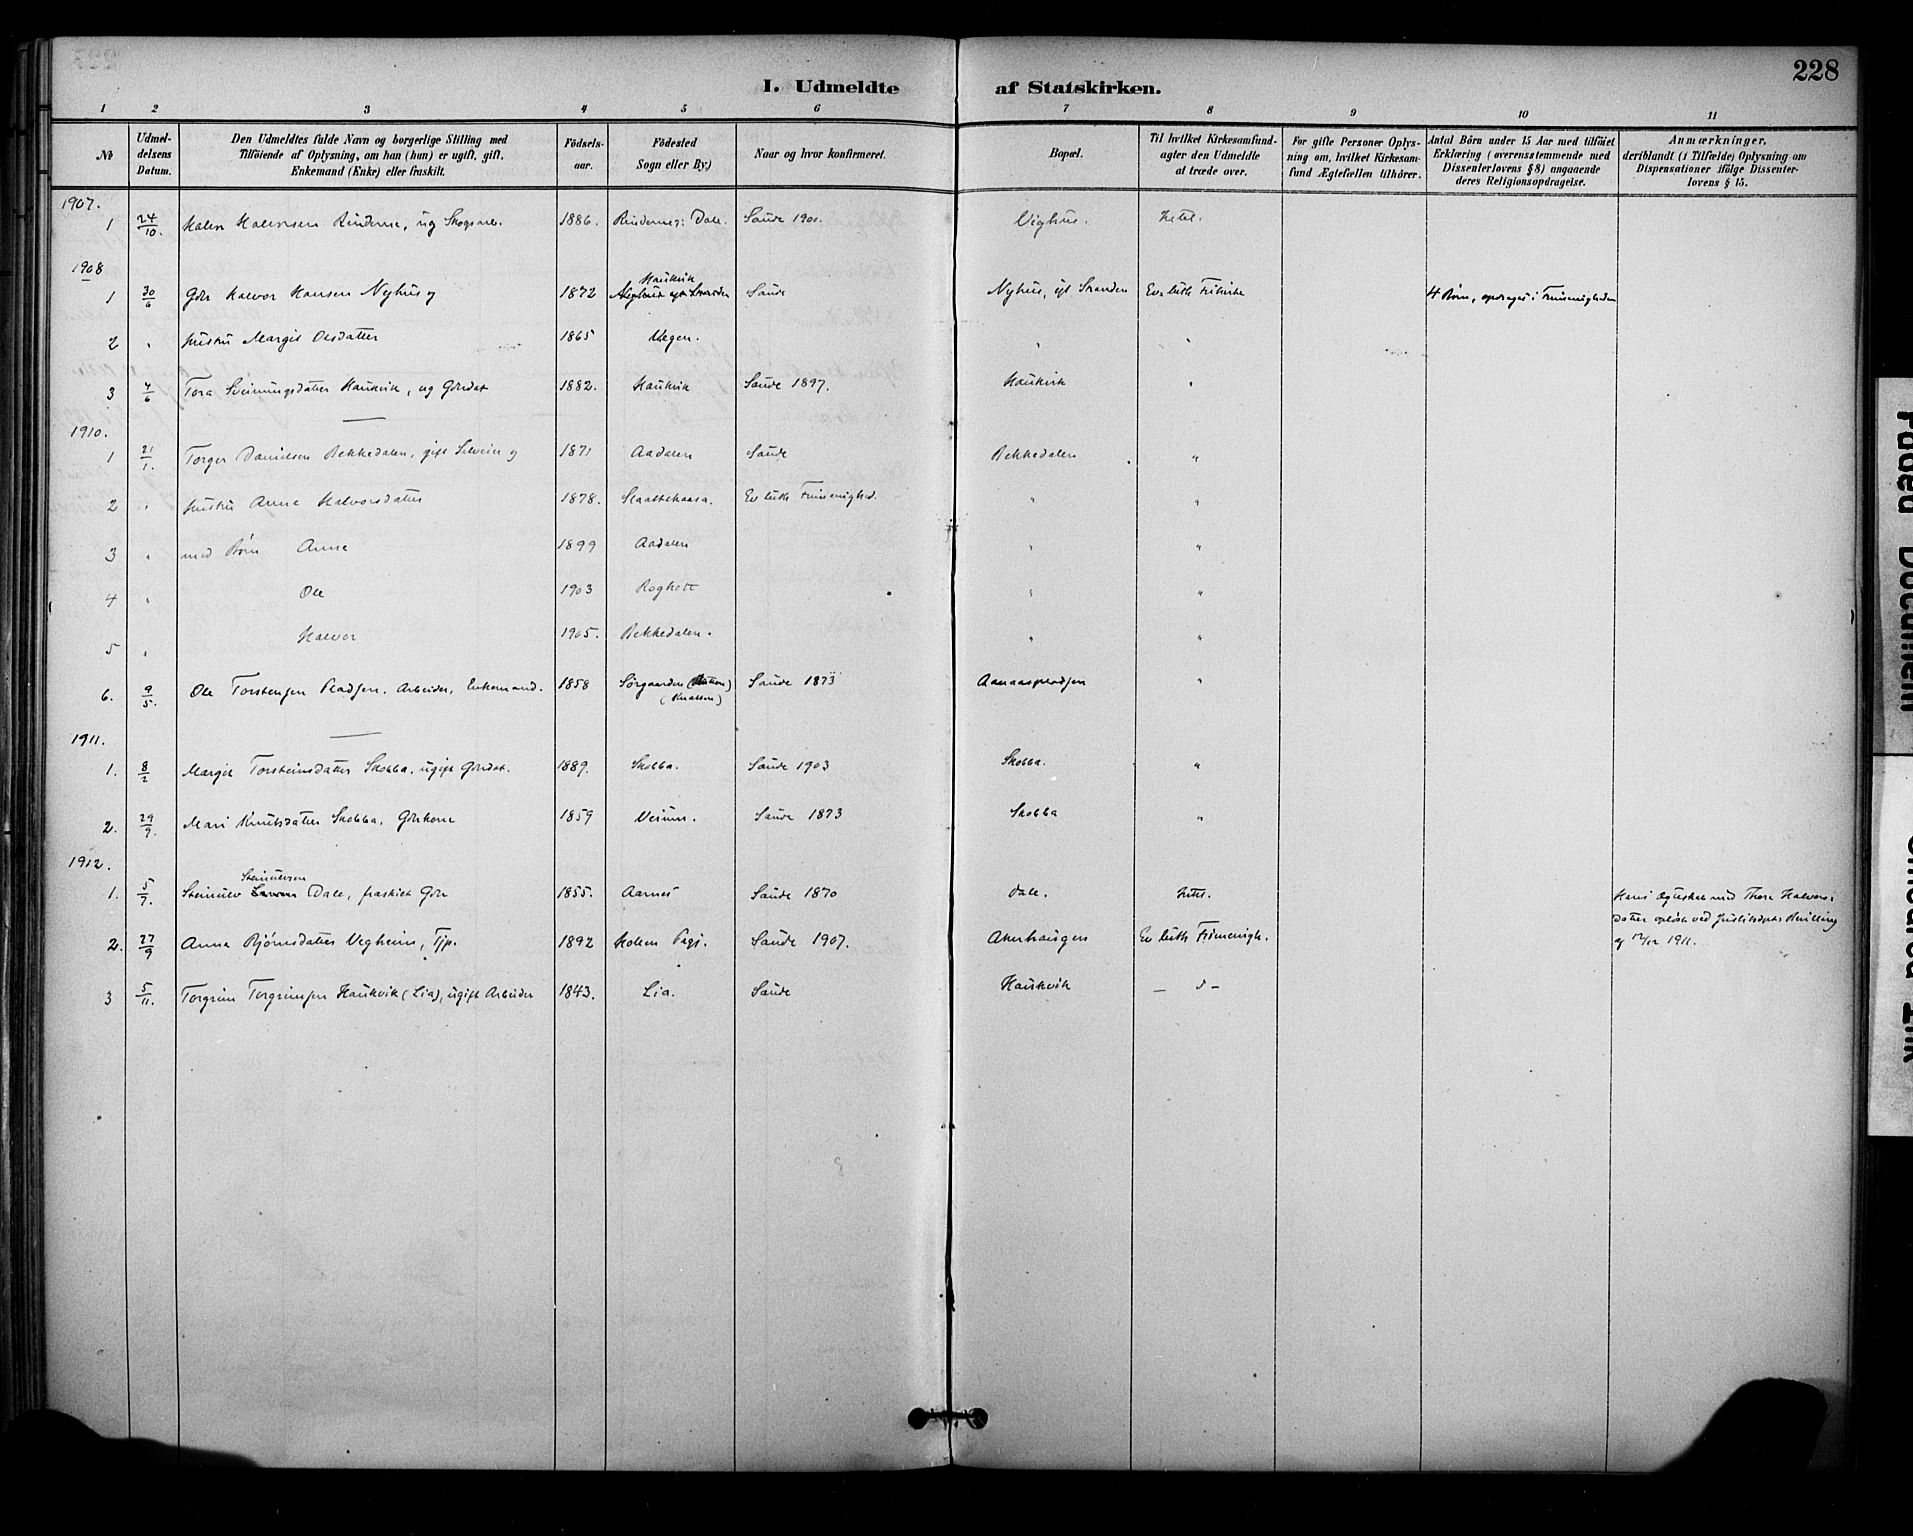 228
I. Udmeldte af Statskirken.
1 2 3 4 5 6 7 8 9 10 11
No
Udmeldelsens Datum.
Den Udmeldtes fulde Navn og borgerlige Stilling med
Tilföiende af Oplysning, om han (hun) er ugift, gift,
Enkemand (Enke) eller fraskilt.
Födselsaar.
Födested
Sogn eller By.)
Naar og hvor konfirmeret.
Bopæl.
Til hvilket Kirkesamfund-
agter den Udmeldte
at træde over.
For gifte Personer Oplys-
ning om, hvilket Kirkesam-
fund Ægtefællen tilhörer.
Antal Börn under 15 Aar med tilföiet
Erklæring (overensstemmende med
Dissenterlovens § 8) angaaende
deres Religionsopdragelse.
Anmærkninger,
deriblandt (i Tilfælde) Oplysning om
Dispensationer ifölge Dissenter-
lovens § 15.
1907.
1 24/10. Halvor Halvorsen Rinderne, ug 1886. Dale. Saude 1900. Vighus.
1908
1 30/6 Gbr Halvor Hansen Nyhus og 1872 Haukvik Saude Nyhus, Ev luth Frikirke 4 Børn, opdrages i Frimenigheden
2 " Hustru Margit Olsdatter 1865 " "
3 4/6 Tora Sveinungsdatter Haukvik, ug Gbrdat 1882. Haukvik Saude 1897. Haukvik "
1910.
1 21/1. Torger Danielsen Bekkedalen, gift og 1871 Aadalen Saude Bekkedalen "
2 " Hustru Anne Halvorsdatter 1878. Slaattekaasa. Ev luth Frimenighed. " "
3 " med Børn Anne 1899 Aadalen " "
4 " Ole 1903 " "
5 " Halvor 1905. Bekkedalen. " "
6. 9/5. Ole Torstensen Pladsen. Arbeider, Enkemand. 1858 Sørgaarden (Knatten) Saude 1873 "
1911.
1. 8/2 Margit Torsteinsdatter Skobba, ugift Gbrdat. 1889. Skobba. Saude 1903 Skobba. "
2. 29/9. Mari Knutsdatter Skobba, Gbrkone 1859 Saude 1873 Skobba "
1912.
1. 5/7. Steinulv Steinulvsen Dale, fraskilt Gbr 1855. Aarnes Saude 1870 Dale. Hans Ægteskab med Thora Halvors-
datter opløst ved Justitsdepts Bevilling
af 1911.
2. 27/9 Anna Bjørnsdatter Vegheim, Tjp. 1892 Saude 1907. Akerhaugen Ev luth Frimenigh.
3 5/11. Torgrim Torgrimsen Haukvik (Lia), ugift Arbeider 1843. Lia. Saude Haukvik
Faded Document